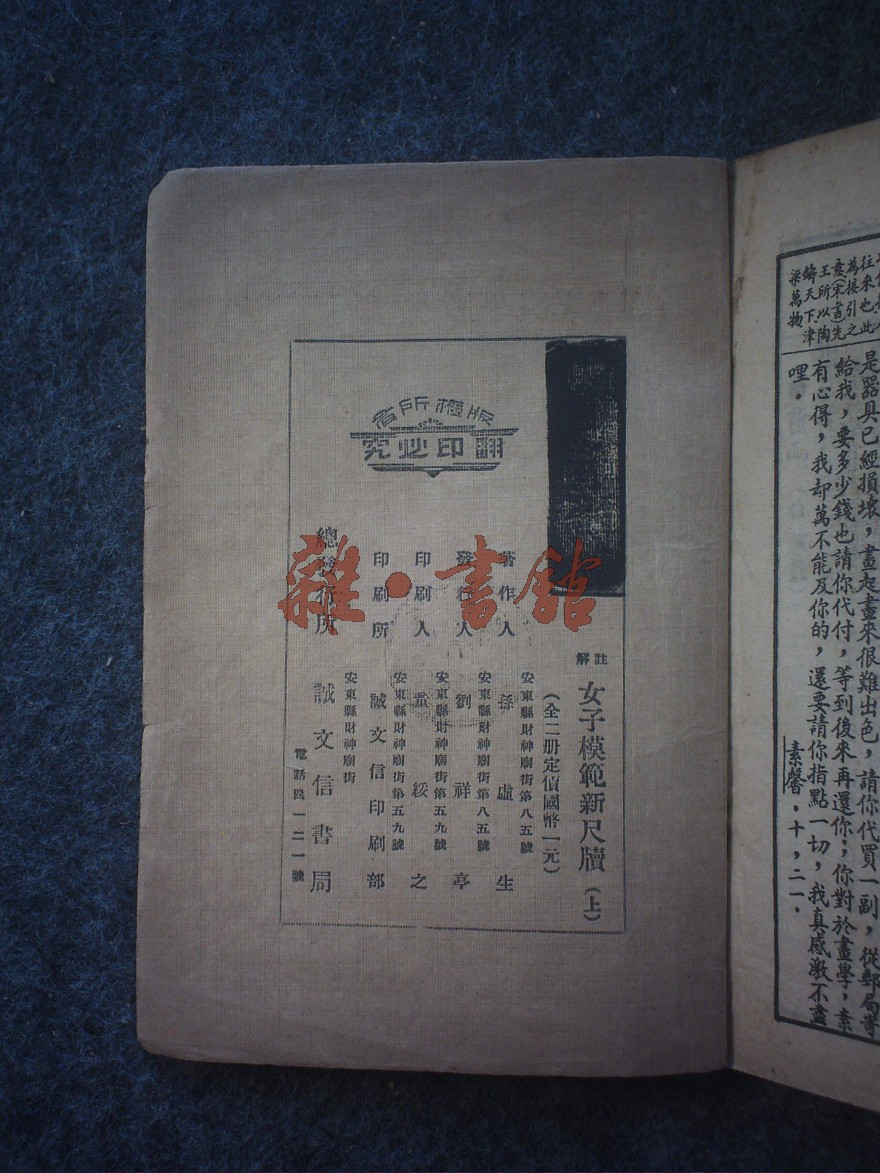 往來也此
為接引之
意(宋書)先
王所以陶
鑄天下津
梁萬物
是器具已經損壞，畫起畫來很難出色，請你代買一副，從郵局寄
給我，要多少錢也請你代付，等到後來再還你；你對於畫學，素
有心得，我却萬不能及你的，還要請你指點一切，我真感激不盡
哩。
素馨．十，二一．
註解 女子模範新尺牘（上）
（全二册定價國幣一元）
安東縣財神廟街第八五號
著作人 孫虛生
安東縣財神廟街第八五號
發行人 劉祥亭
安東縣財神廟街第五九號
印刷人 董綏之
安東縣財神廟街第五九號
印刷所 誠文信印刷部
安東縣財神廟街
總發行所 誠文信書局
電話四一二一號
版權所有
翻印必究
雜·書館